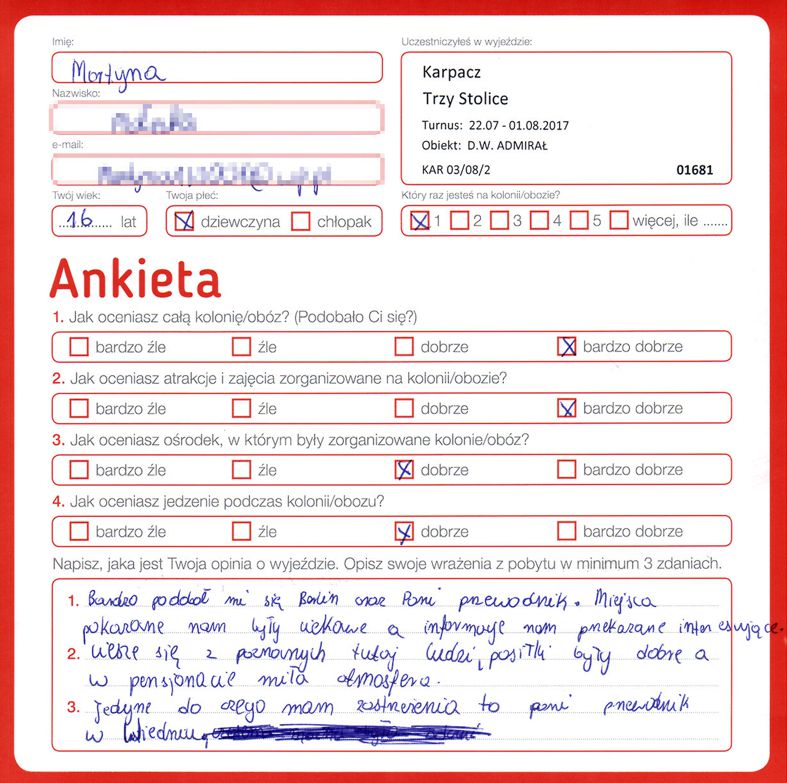 Imię:
Martyna
Uczestniczyłeś w wyjeździe:
Karpacz
Trzy Stolice
Turnus: 22.07 - 01.08.2017
Obiekt: D.W. ADMIRAŁ
KAR 03/08/2 01681
Nazwisko:
e-mail:
Twój wiek:
16 lat
Twoja płeć:
dziewczyna chłopak
Który raz jesteś na kolonii/obozie?
1 2 3 4 5 więcej, ile .......
Ankieta
1. Jak oceniasz całą kolonię/obóz? (Podobało Ci się?)
bardzo źle źle dobrze bardzo dobrze
2. Jak oceniasz atrakcje i zajęcia zorganizowane na kolonii/obozie?
bardzo źle źle dobrze bardzo dobrze
3. Jak oceniasz ośrodek, w którym były zorganizowane kolonie/obóz?
bardzo źle źle dobrze bardzo dobrze
4. Jak oceniasz jedzenie podczas kolonii/obozu?
bardzo źle źle dobrze bardzo dobrze
Napisz, jaka jest Twoja opinia o wyjeździe. Opisz swoje wrażenia z pobytu w minimum 3 zdaniach.
1. Bardzo podobał mi się Berlin oraz Pani przewodnik. Miejsca
pokazane nam były ciekawe a informacje nam przekazane interesujące.
2. Cieszę się z poznanych tutaj ludzi, posiłki były dobre a
w pensjonacie miła atmosfera.
3. Jedyne do czego mam zastrzeżenia to pani przewodnik
w Wiedniu